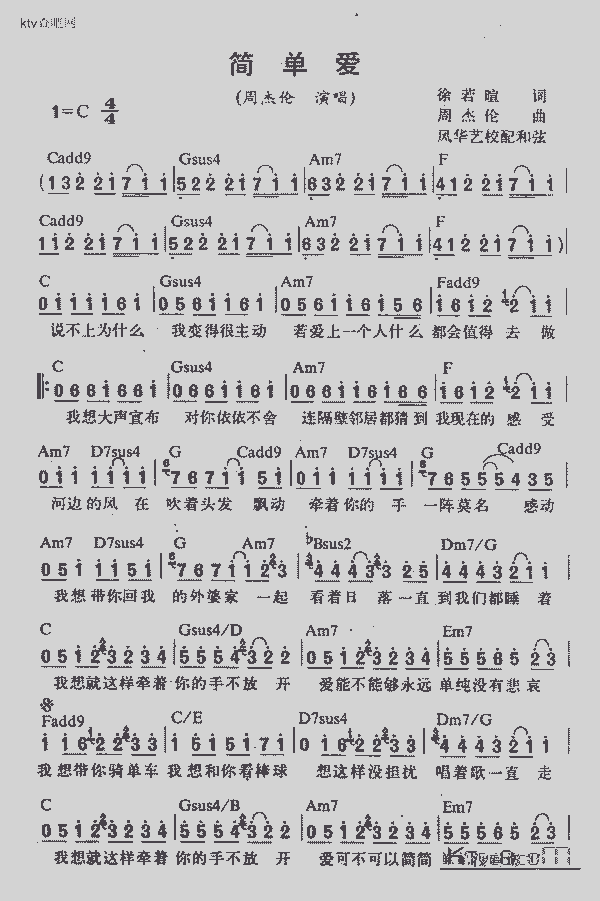 ktv众吧网
简 单 爱
(周杰伦 演唱)
1=C 4/4
徐若暄 词
周杰伦 曲
风华艺校配和弦
Cadd9 Gsus4 Am7 F
(1 3 2 2 2 1 7 1 1 | 5 2 2 2 2 1 7 1 1 | 6 3 2 2 2 1 7 1 1 | 4 1 2 2 2 1 7 1 1 |
Cadd9 Gsus4 Am7 F
1 1 2 2 2 1 7 1 1 | 5 2 2 2 2 1 7 1 1 | 6 3 2 2 2 1 7 1 1 | 4 1 2 2 2 1 7 1 1 )
C Gsus4 Am7 Fadd9
0 1 1 1 1 6 1 | 0 5 6 1 1 6 1 | 0 5 6 1 1 6 1 5 6 | 1 6 1 2 2 1 1 |
说不上为什么 我变得很主动 若爱上一个人什么 都会值得 去 做
C Gsus4 Am7 F
0 6 6 1 6 6 1 | 0 6 6 1 6 6 1 | 0 6 6 1 1 6 1 6 6 | 1 6 1 2 2 1 1 |
我想大声宣布 对你依依不舍 连隔壁邻居都猜到 我现在的 感 受
Am7 D7sus4 G Cadd9 Am7 D7sus4 G Cadd9
0 1 1 1 1 1 1 | 7 6 7 1 1 5 1 | 0 1 1 1 1 1 1 | 7 6 5 5 5 4 3 5 |
河边 的 风 在 吹着头发 飘动 牵着 你的 手 一阵莫名 感动
Am7 D7sus4 G Am7 ♭Bsus2 Dm7/G
0 5 1 1 1 5 1 | 7 6 7 1 1 2 3 | 4 4 4 3 3 2 5 | 4 4 4 3 2 1 1 |
我想 带你回我 的外婆家 一起 看着日 落一直 到我们都睡 着
C Gsus4/D Am7 Em7
0 5 1 2 3 2 3 4 | 5 5 5 4 3 2 2 | 0 5 1 2 3 2 3 4 | 5 5 5 6 5 2 3 |
我想就这样牵着 你的手不放 开 爱能不能够永远 单纯没有悲哀
Fadd9 C/E D7sus4 Dm7/G
1 1 6 2 2 3 3 | 1 5 1 5 1 7 1 | 0 1 6 2 2 3 3 | 4 4 4 3 2 1 1 |
我 想带你骑单车 我 想和你看棒球 想这样没担忧 唱着歌一直 走
C Gsus4/B Am7 Em7
0 5 1 2 3 2 3 4 | 5 5 5 4 3 2 2 | 0 5 1 2 3 2 3 4 | 5 5 5 6 5 2 3 |
我想就这样牵着 你的手不放 开 爱可不可以简简